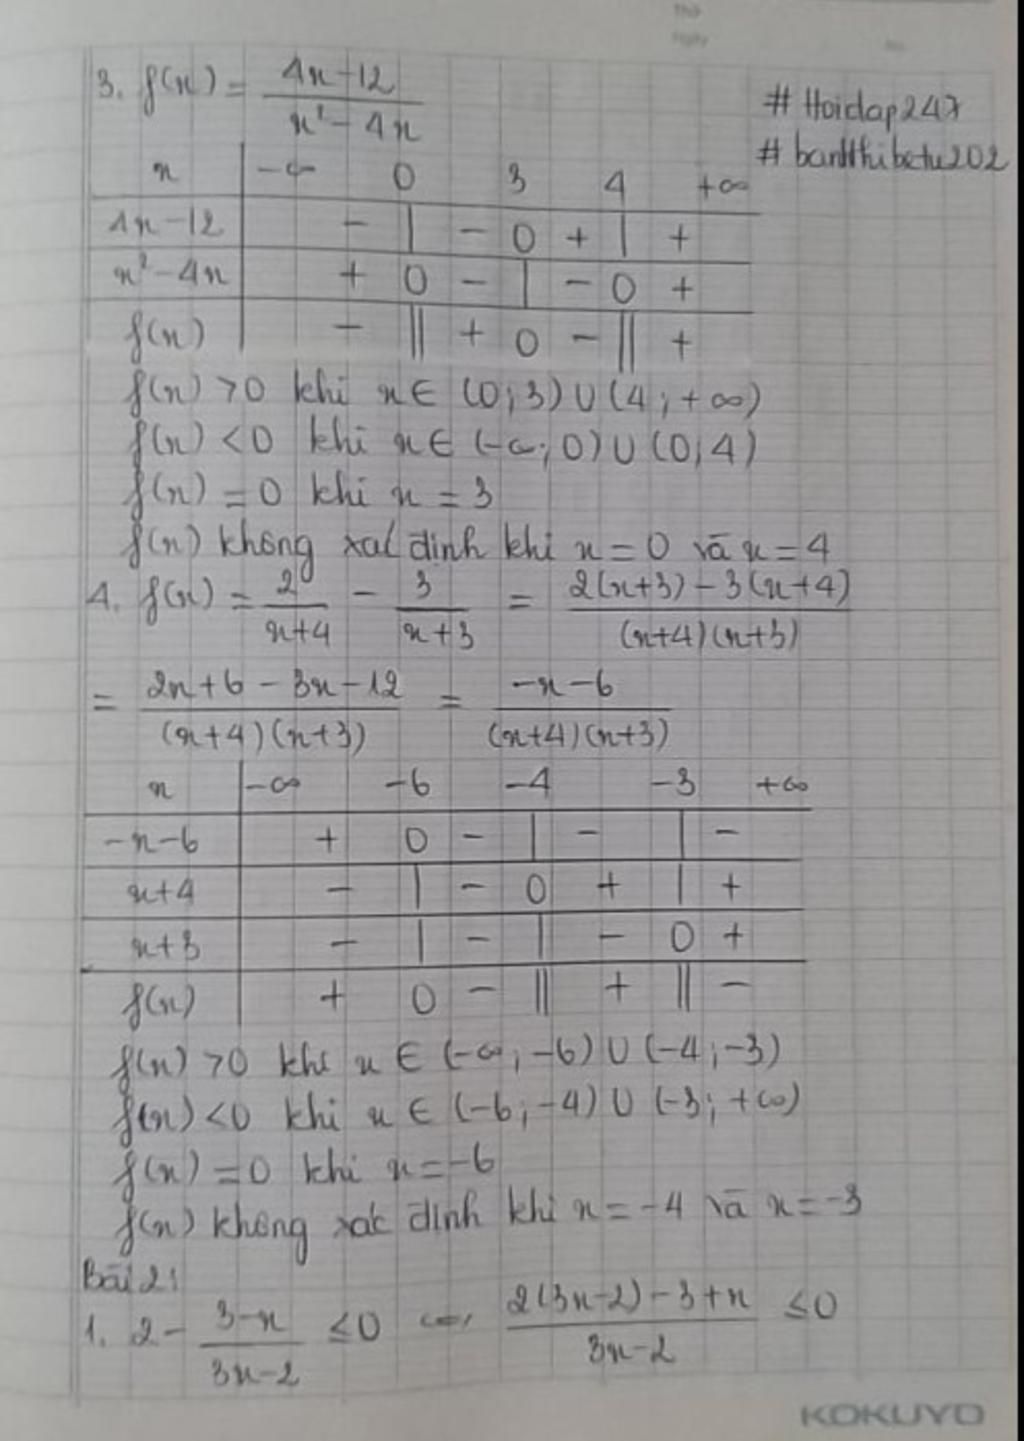 3. f(x) = (4x-12)/(x² - 4x)
# Hoidap247
# banhthibetu202
x | -∞ 0 3 4 +∞
4x-12 | - | - 0 + | +
x²-4x | + 0 - | - 0 +
f(x) | - || + 0 - || +
f(x) >0 khi x ∈ (0;3) ∪ (4;+∞)
f(x) <0 khi x ∈ (-∞;0) ∪ (0;4)
f(x) = 0 khi x = 3
f(x) không xác định khi x = 0 và x = 4
4. f(x) = 2/(x+4) - 3/(x+3) = (2(x+3)-3(x+4))/((x+4)(x+3))
= (2x+6-3x-12)/((x+4)(x+3)) = (-x-6)/((x+4)(x+3))
x | -∞ -6 -4 -3 +∞
-x-6 | + 0 - | - | -
x+4 | - | - 0 + | +
x+3 | - | - | - 0 +
f(x) | + 0 - || + || -
f(x) >0 khi x ∈ (-∞;-6) ∪ (-4;-3)
f(x) <0 khi x ∈ (-6;-4) ∪ (-3;+∞)
f(x) = 0 khi x = -6
f(x) không xác định khi x = -4 và x = -3
Bài 2:
1. 2 - (3-x)/(3x-2) ≤0 <=> (2(3x-2)-3+x)/(3x-2) ≤0
KOKUYO